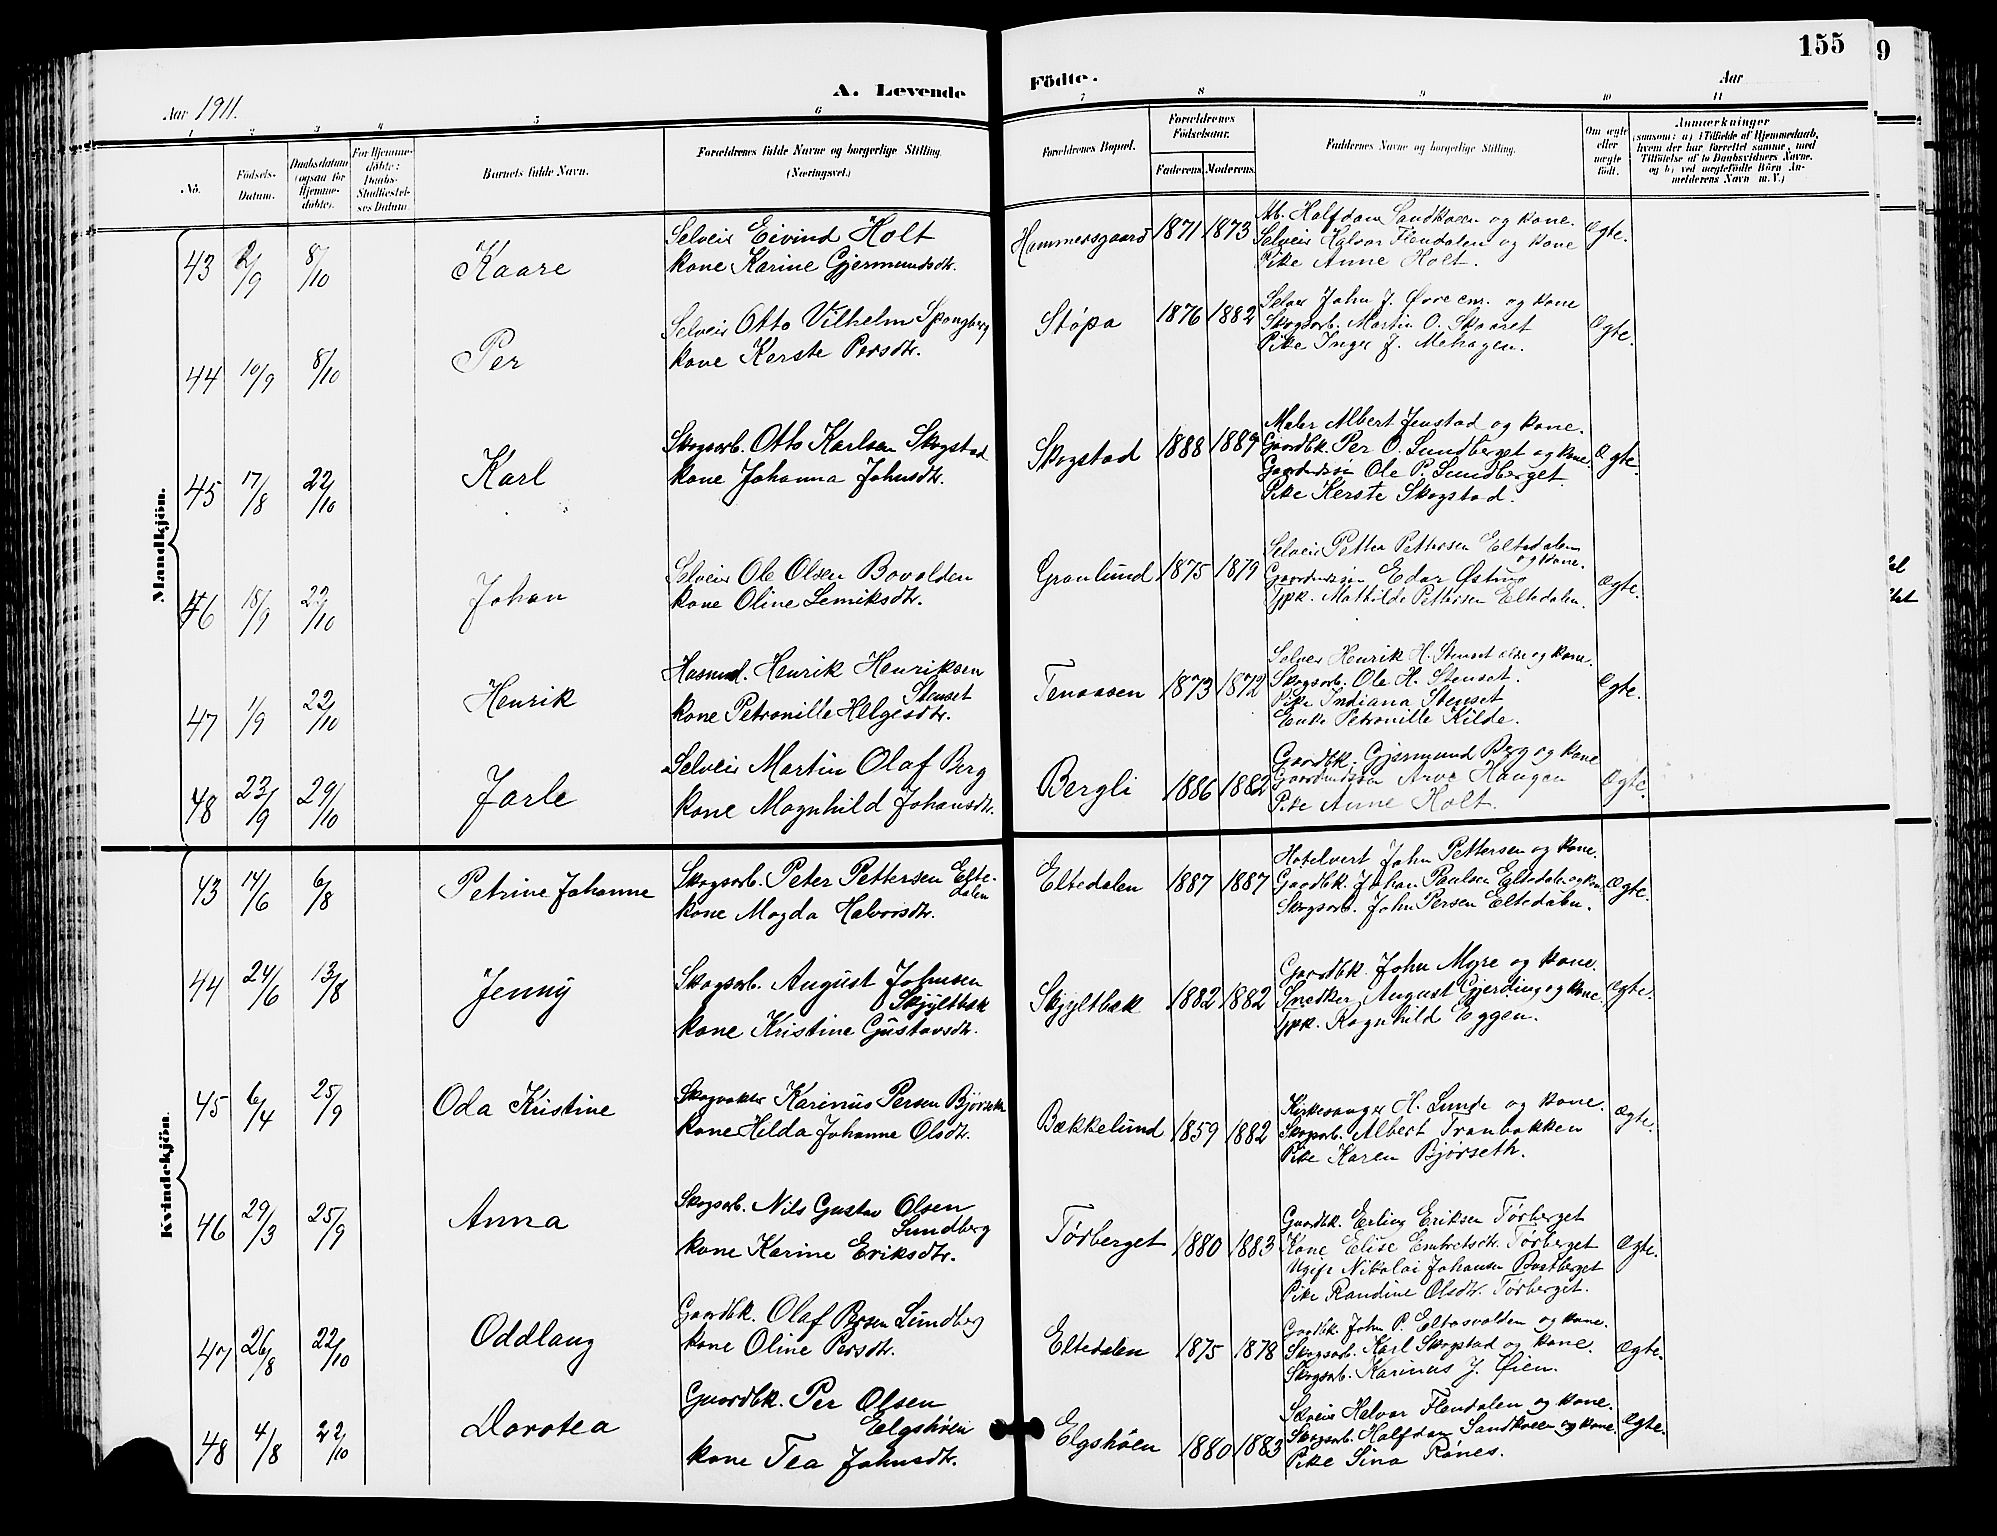 155
9
A. Levende
Födte.
Aar 1911.
Aar
1 2 3 4 5 6 7 8 9 10 11
No.
Födsels-Datum.
Daabsdatum (ogsaa for Hjemme-döbte).
For Hjemme-döbte: Daabs-Stadfæstelses Datum
Barnets fulde Navn.
Forældrenes fulde Navne og borgerlige Stilling (Næringsvei.)
Forældrenes Bopæl.
Forældrenes Födselsaar.
Faderens. Moderens.
Faddernes Navne og borgerlige Stilling.
Om ægte eller uægte født.
Anmærkninger
(saasom: a) i Tilfælde af Hjemmedaab, hvem der har forrettet samme, med Tilføielse af to Daabsvidners Navne, og b) ved uægtefødte Börn Anmelderens Navn m. V.)
Mandkjön.
43 2/9 8/10 Kaare
Selveier Eivind Holt
kone Karine Gjermundsdtr.
Hammersgaard 1871 1873
Arb. Halfdan Sandkveen og kone.
Selveier Halvor Flendalen og kone
Pike Anne Holt.
Ægte.
44 10/9 8/10 Per
Selveier Otto Vilhelm Spangberg
kone Kerste Persdtr.
Støpa 1876 1882
Selveier John J. Øvre enr. og kone
Skogsarb. Martin O. Skaaret
Pike Inger J. Mehagen.
Ægte.
45 17/8 22/10 Karl
Skogsarb. Otto Karlsen Skogstad
kone Johanna Johnsdtr.
Skogstad 1888 1889
Maler Albert Jenstad og kone.
Gaardbk. Per O. Sundberget og kone.
Gaardmdssøn Ole P. Sundberget.
Pike Kerste Skogstad.
Ægte.
46 18/9 22/10 Johan
Selveier Ole Olsen Bovolden
kone Oline Lemiksdtr.
Granlund 1875 1879
Selveier Petter Pettersen Eltedalen
og kone.
Gaardmdssøn Edar Østmo
Tjpk. Mathilde Pettersen Eltedalen.
Ægte.
47 1/9 22/10 Henrik
Husmd. Henrik Henriksen
Stenset
kone Petronille Helgesdtr.
Tenaasen 1873 1872
Selveier Henrik H. Stenset eldre og kone.
Skogsarb. Ole H. Stenset.
Pike Indiana Stenset
Enke Petronille Kilde.
Ægte.
48 23/9 29/10 Jarle
Selveier Martin Olaf Berg
kone Magnhild Johansdtr.
Bergli 1886 1882
Gaardbk. Gjermund Berg og kone
Gaardmdssøn Arve Haugen
Pike Anne Holt.
Ægte.
Kvindekjön.
43 14/6 6/8 Petrine Johanne
Skogsarb. Peter Pettersen Elte-
dalen
kone Magda Halvorsdtr.
Eltedalen 1887 1887
Hotelvert John Pettersen og kone.
Gaardbk. Johan Paulsen Eltedalen og kone
Skogsarb. John Persen Eltedalen.
Ægte.
44 24/6 13/8 Jenny
Skogsarb. August Johnsen
Skjyltbæk
kone Kristine Gustavsdtr.
Skjyltbæk 1882 1882
Gaardbk. John Myre og kone.
Snedker August Gjerding og kone.
Tjpk. Ragnhild Eggen.
Ægte.
45 6/4 25/9 Oda Kristine
Skogvokter Karinus Persen Bjørseth
kone Helda Johanne Olsdtr.
Bækkelund 1859 1882
Kirkesanger H. Lunde og kone.
Skogsarb. Albert Tranbakken
Pike Karen Bjørseth.
Ægte.
46 29/3 25/9 Anna
Skogsarb. Nils Gustav Olsen
Sundberg
kone Karine Eriksdtr.
Tørberget 1880 1883
Gaardbk. Erling Eriksen Tørberget
Kone Elise Embretsdtr. Tørberget
Ugift Nikolai Johansen Bastberget
Pike Randine Olsdtr. Tørberget.
Ægte.
47 26/8 22/10 Oddlaug
Gaardbk. Olaf Persen Sundberg
kone Oline Persdtr.
Eltedalen 1875 1878
Gaardbk. John P. Eltasvolden og kone.
Skogsarb. Karl Skogstad og kone.
Skogsarb. Karinus J. Øien.
Ægte.
48 4/8 22/10 Dorotea
Gaardbk. Per Olsen
Elgshøen
kone Tea Johnsdtr.
Elgshøen 1880 1883
Selveier Halvor Flendalen og kone.
Skogsarb. Halfdan Sandkveen og kone.
Pike Sina Rønes.
Ægte.